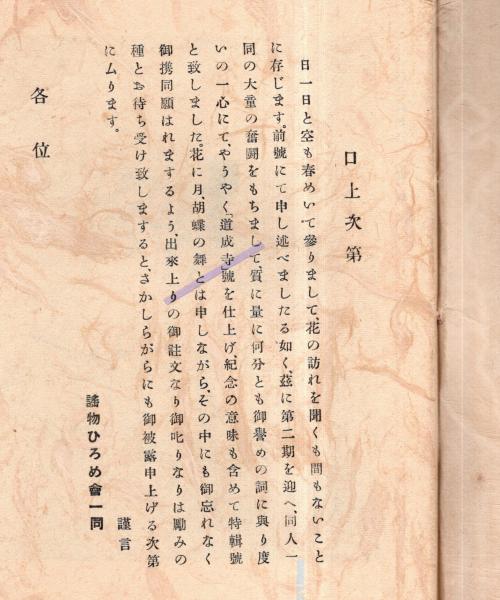 口上次第
日一日と空も春めいて參りまして、花の訪れを聞くも間もないこと
に存じます。前號にて申し述べましたる如く、茲に第二期を迎へ、同人一
同の大童の奮鬪をもちまして、質に量に何分とも御譽めの詞に與り度
いの一心にて、やうやく「道成寺」號を仕上げ、紀念の意味も含めて特輯號
と致しました。花に月、胡蝶の舞とは申しながら、その中にも御忘れなく
御携同願はれまするよう、出來上りの御註文なり御叱りなりは勵みの
種とお待ち受け致しまするとさかしらがらにも御被露申上げる次第
に厶ります。
謹言
謠物ひろめ會一同
各位